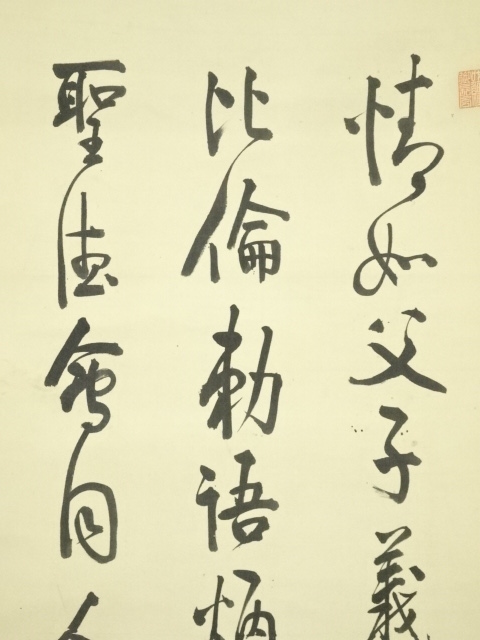 情如父子義
比倫勅語炳
聖徳會